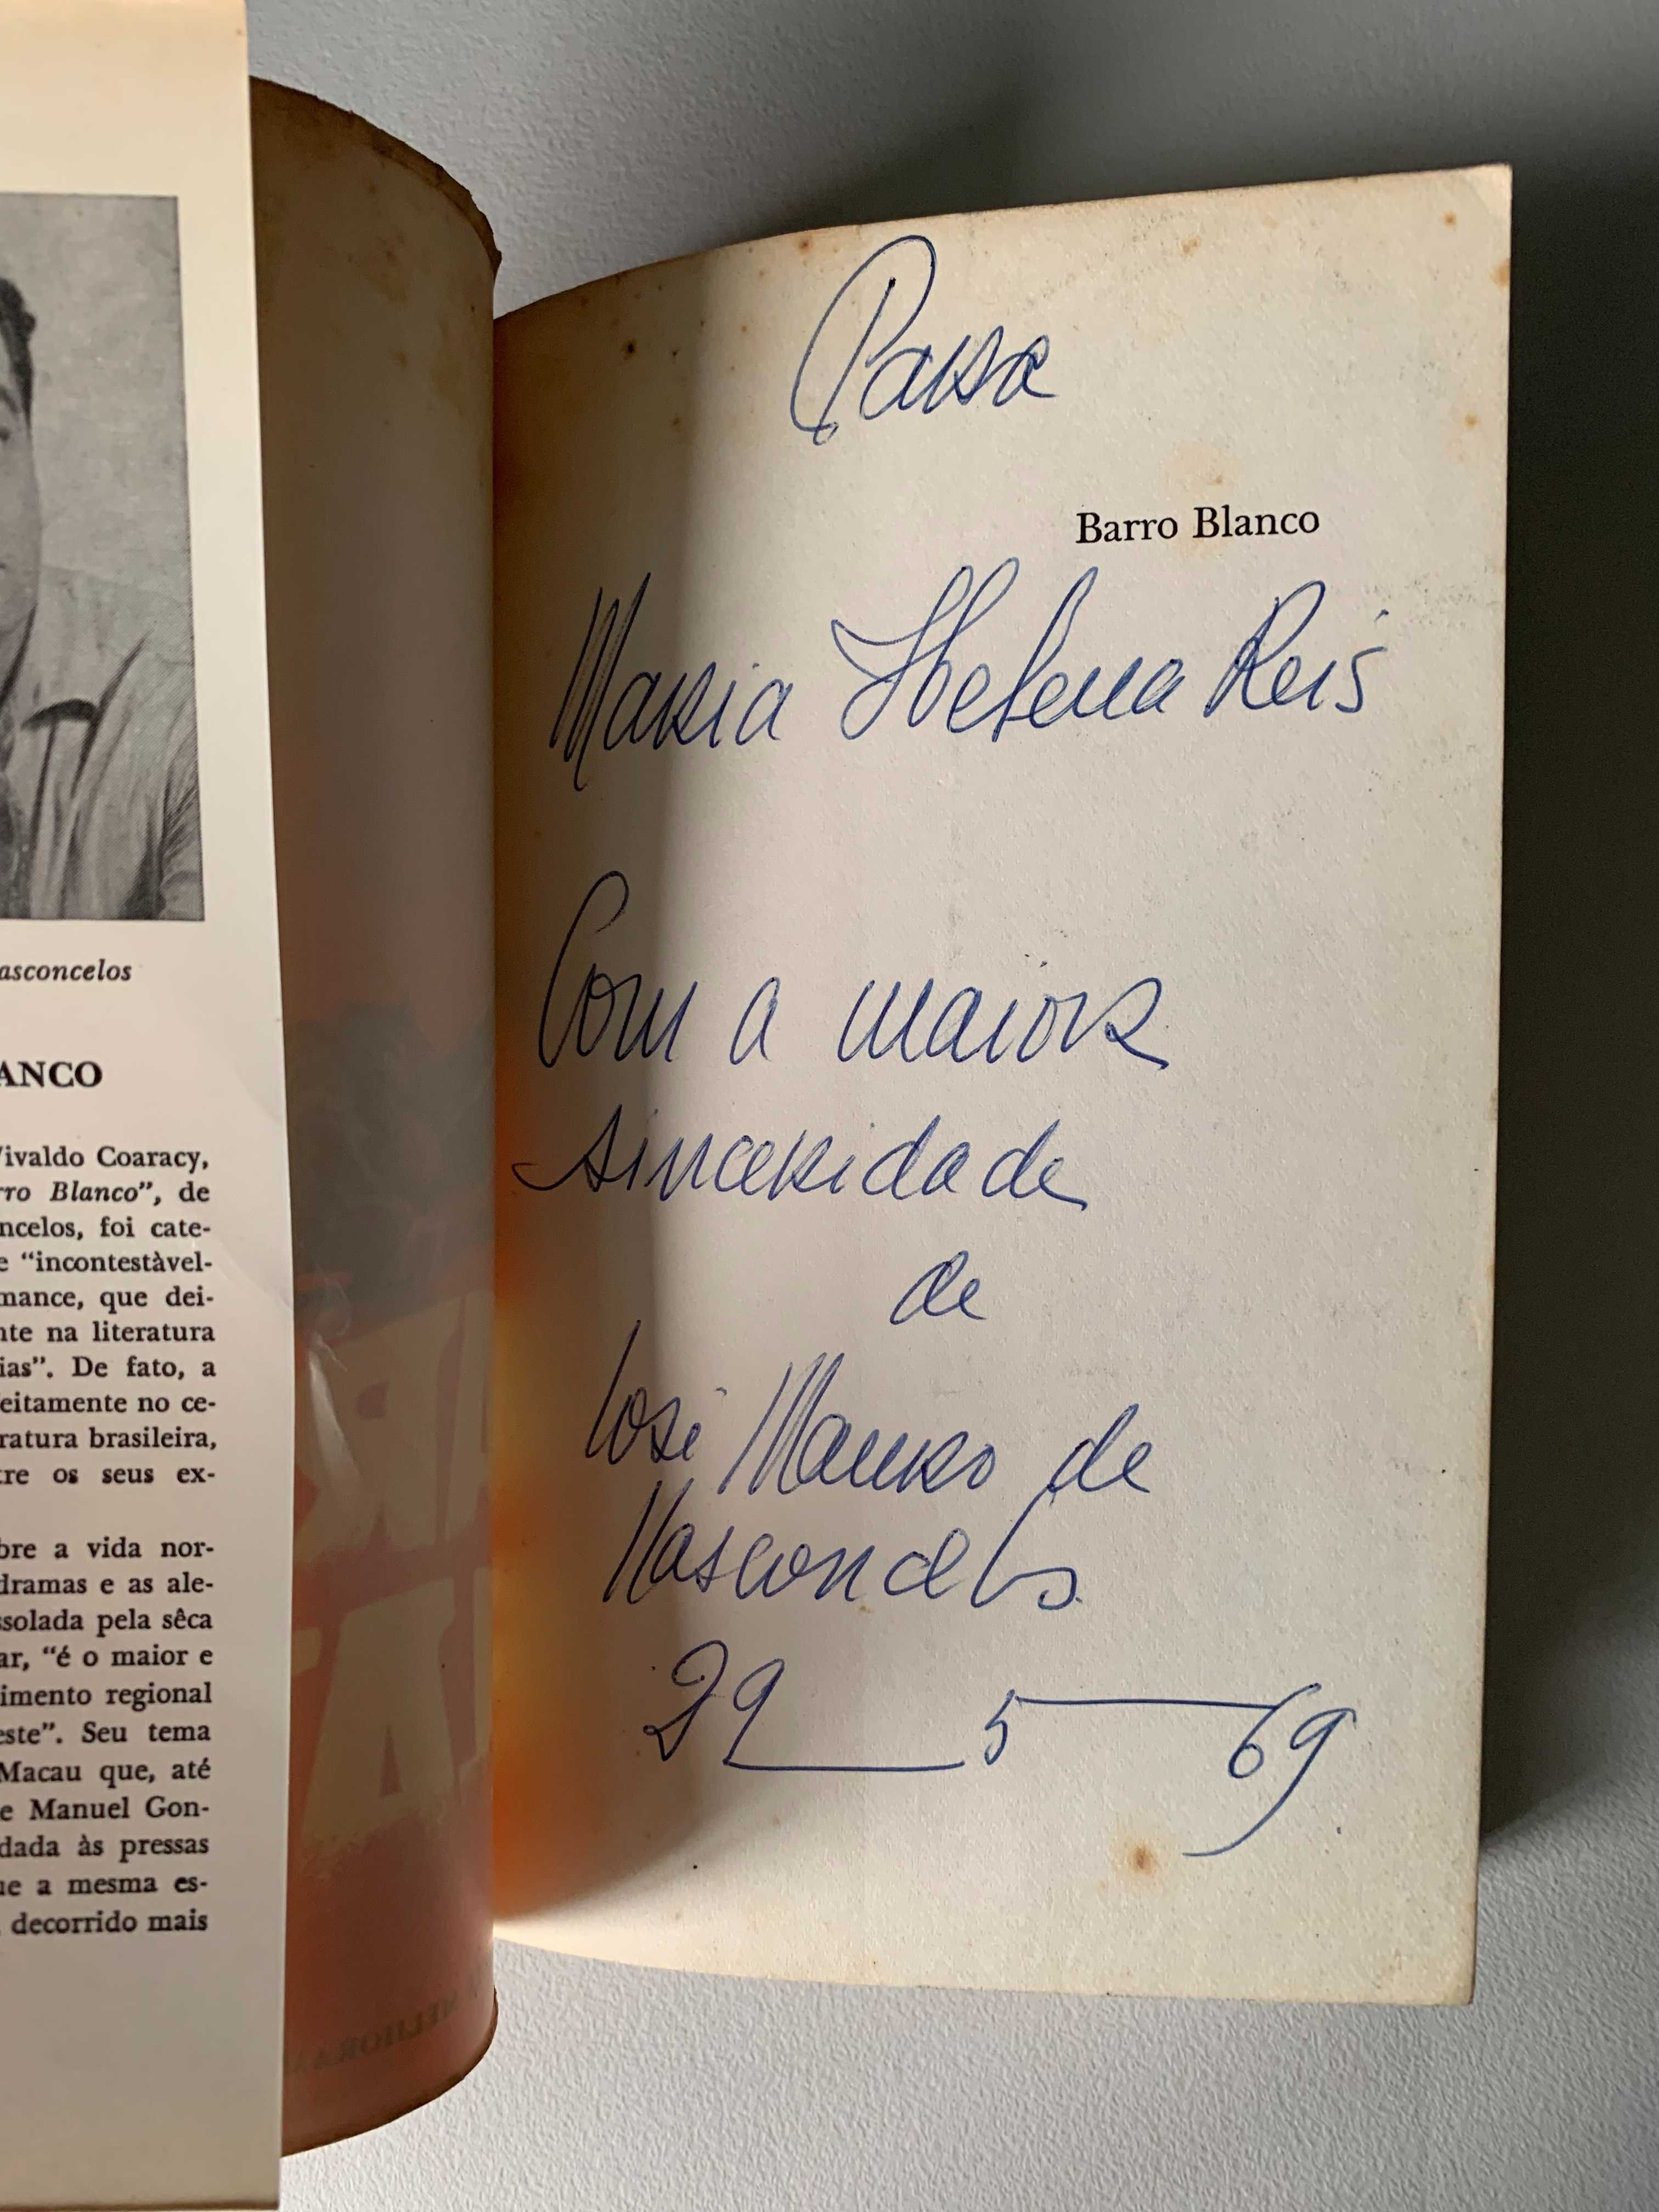 asconcelos
ANCO
Vivaldo Coaracy,
rro Blanco”, de
ncelos, foi cate-
e “incontestàvel-
mance, que dei-
nte na literatura
ias”. De fato, a
eitamente no ce-
ratura brasileira,
tre os seus ex-
bre a vida nor-
dramas e as ale-
ssolada pela sêca
ar, “é o maior e
imento regional
este”. Seu tema
Macau que, até
e Manuel Gon-
dada às pressas
ue a mesma es-
decorrido mais
Para
Barro Blanco
Maria Helena Reis
Com a maior
sinceridade
de
José Mauro de
Vasconcelos
29 5 69